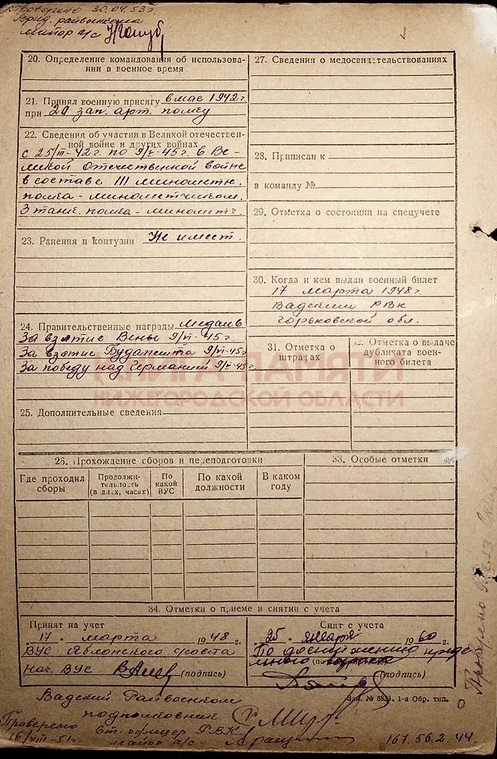 Проверено 30.04.53 г
райвоенкома
майор а/с
20. Определение командования об использова-
нии в военное время
21. Принял военную присягу в мае 1942 г.
при 20 зап. арт. полку
22. Сведения об участии в Великой отечествен-
ной войне и других войнах
с 25/III-42 г. по 9/V-45 г. в Ве-
ликой Отечественной войне
в составе III минометн.
полка - минометчиком.
3 танк. полка - минометч.
23. Ранения и контузии Не имеет.
24. Правительственные награды Медаль
За взятие Вены 9/VI-45 г.
За взятие Будапешта 9/VI-45 г
За победу над Германией 9/V-45 г.
25. Дополнительные сведения
27. Сведения о медосвидетельствованиях
28. Приписан к
в команду №
29. Отметка о состоянии на спецучете
30. Когда и кем выдан военный билет
17 марта 1948 г
Вадским РВК
Горьковской обл.
31. Отметка о
штрафах
32. Отметка о выдаче
дубликата воен-
ного билета
КНИГА ПАМЯТИ
НИЖЕГОРОДСКОЙ ОБЛАСТИ
26. Прохождение сборов и переподготовки
Где проходил
сборы
Продолжи-
тельность
(в днях, часах)
По
какой
ВУС
По какой
должности
В каком
году
33. Особые отметки
34. Отметки о приеме и снятии с учета
Принят на учет
17. марта 1948 г.
ВУС Яблонского с/совета
Нач. ВУС (подпись)
Снят с учета
25. января 1960 г.
По достижению преде
льного возраста
(подпись)
1-я Обр. тип.
Вадский Райвоенком
подполковник
Проверено
16/VIII-51 г.
Ст. офицер РВК
майор а/с
167.56.2.44